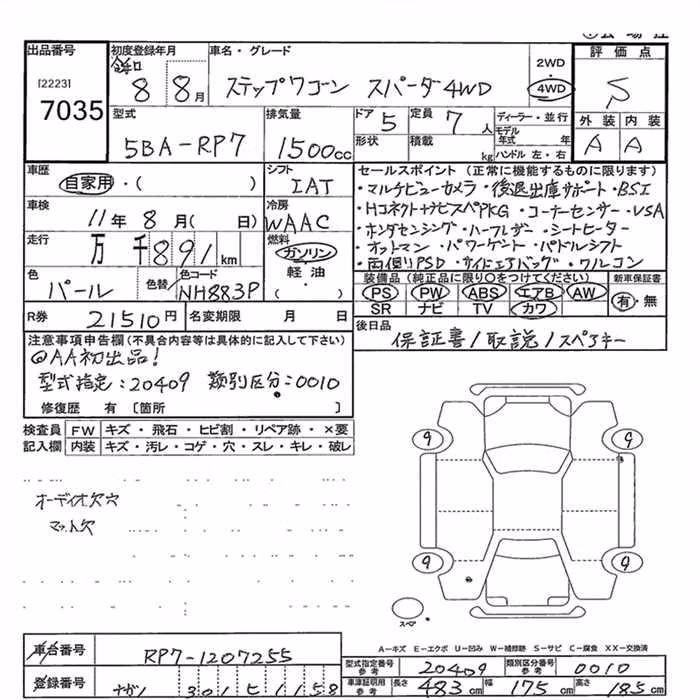 出品番号
[2223]
7035
初度登録年月
8 8月
車名・グレード
ステップワゴン スパーダ 4WD
2WD
4WD
評価点
S
外装 内装
A A
型式
5BA-RP7
排気量
1500cc
ドア 5
形状
定員 7人
積載 kg
ディーラー・並行
モデル年式 年
ハンドル 左・右
車歴
自家用・( )
シフト
IAT
車検
11年8月( 日)
冷房
WAAC
走行
万 千 891 km
燃料
ガソリン
軽油
( )
色
パール
色替
色コード
NH883P
セールスポイント (正常に機能するものに限ります)
・マルチビューカメラ・後退出庫サポート・BSI
・Hコネクト+ナビスペPKG・コーナーセンサー・VSA
・ホンダセンシング・ハーフレザー・シートヒーター
・オットマン・パワーゲート・パドルシフト
・両側PSD・サイドエアバッグ・クルコン
装備品(純正品に限り○をつけてください)
PS PW ABS エアB AW
SR ナビ TV カワ
新車保証書
有・無
R券 21510円
名変期限 月 日
後日品
保証書/取説/スペアキー
注意事項申告欄(不具合内容等は具体的に記入して下さい)
@AA初出品!
型式指定:20409 類別区分:0010
修復歴 有 [箇所 ]
検査員記入欄
FW キズ・飛石・ヒビ割・リペア跡・×要
内装 キズ・汚レ・コゲ・穴・スレ・キレ・破レ
オーディオ欠穴
マット欠
9 9
9 9
スペア
A-キズ E-エクボ U-凹み W-補修跡 S-サビ C-腐食 XX-交換済
車台番号
RP7-1207255
登録番号
ナガノ 301 1158
型式指定番号 参考 20409
類別区分番号 参考 0010
車庫証明用 参考 長さ 483 幅 175 高さ 185cm